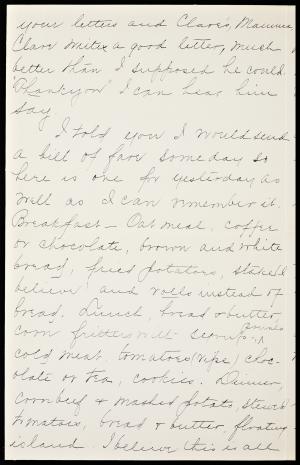 your letters and Clare's, Mamma,
Clare writes a good letter, much
better than I supposed he could.
"Thank you" I can hear him
say.
I told you I would send
a bill of fare some day so
here is one for yesterday as
well as I can remember it.
Breakfast - Oat meal, coffee
or chocolate, brown and white
bread, fried potatoes, steak I
believe and rolls instead of
bread. Lunch, bread & butter,
corn fritters with syrup,
cold meat, tomatoes (ripe) choc-
olate or tea, cookies. Dinner,
cornbeef & mashed potato, stewed
tomatoes, bread & butter, floating
island. I believe this is all